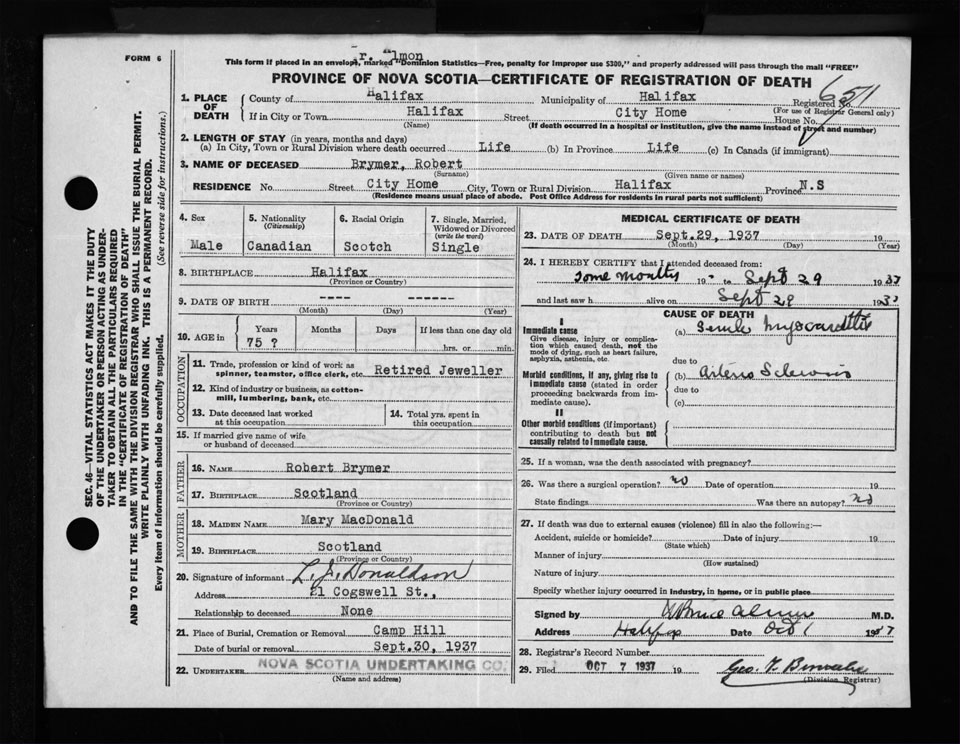 r. Almon
FORM 6
This form if placed in an envelope, marked "Dominion Statistics—Free, penalty for improper use $300," and properly addressed will pass through the mail "FREE"
PROVINCE OF NOVA SCOTIA—CERTIFICATE OF REGISTRATION OF DEATH
SEC. 46—VITAL STATISTICS ACT MAKES IT THE DUTY
OF THE UNDERTAKER OR PERSON ACTING AS UNDER-
TAKER TO OBTAIN ALL THE PARTICULARS REQUIRED
IN THE "CERTIFICATE OF REGISTRATION OF DEATH"
AND TO FILE THE SAME WITH THE DIVISION REGISTRAR WHO SHALL ISSUE THE BURIAL PERMIT.
WRITE PLAINLY WITH UNFADING INK. THIS IS A PERMANENT RECORD.
Every item of information should be carefully supplied. (See reverse side for instructions.)
1. PLACE OF DEATH
County of Halifax Municipality of Halifax Registered No. 651
(For use of Registrar General only)
If in City or Town Halifax Street City Home House No.
(Name) (If death occurred in a hospital or institution, give the name instead of street and number)
2. LENGTH OF STAY (in years, months and days)
(a) In City, Town or Rural Division where death occurred Life (b) In Province Life (c) In Canada (if immigrant)
3. NAME OF DECEASED Brymer, Robert
(Surname) (Given name or names)
RESIDENCE No. Street City Home City, Town or Rural Division Halifax Province N.S
(Residence means usual place of abode. Post Office Address for residents in rural parts not sufficient)
4. Sex
Male
5. Nationality
(Citizenship)
Canadian
6. Racial Origin
Scotch
7. Single, Married,
Widowed or Divorced
(write the word)
Single
8. BIRTHPLACE Halifax
(Province or Country)
9. DATE OF BIRTH ---- ----
(Month) (Day) (Year)
10. AGE in
Years Months Days If less than one day old
75 ? hrs. or min.
OCCUPATION
11. Trade, profession or kind of work as
spinner, teamster, office clerk, etc. Retired Jeweller
12. Kind of industry or business, as cotton-
mill, lumbering, bank, etc.
13. Date deceased last worked
at this occupation
14. Total yrs. spent in
this occupation
15. If married give name of wife
or husband of deceased
FATHER
16. NAME Robert Brymer
17. BIRTHPLACE Scotland
(Province or Country)
MOTHER
18. MAIDEN NAME Mary MacDonald
19. BIRTHPLACE Scotland
(Province or Country)
20. Signature of informant L. J. Donaldson
Address 21 Cogswell St.,
Relationship to deceased None
21. Place of Burial, Cremation or Removal Camp Hill
Date of burial or removal Sept.30, 1937
22. UNDERTAKER NOVA SCOTIA UNDERTAKING CO.
(Name and address)
MEDICAL CERTIFICATE OF DEATH
23. DATE OF DEATH Sept.29, 1937 19
(Month) (Day) (Year)
24. I HEREBY CERTIFY that I attended deceased from:
some months 19 to Sept 29 1937
and last saw h alive on Sept 28 1937
CAUSE OF DEATH
I
Immediate cause
Give disease, injury or complica-
tion which caused death, not the
mode of dying, such as heart failure,
asphyxia, asthenia, etc.
(a) Senile Myocarditis
due to
Morbid conditions, if any, giving rise to
immediate cause (stated in order
proceeding backwards from im-
mediate cause).
(b) Arterio Sclerosis
due to
(c)
II
Other morbid conditions (if important)
contributing to death but not
causally related to immediate cause.
25. If a woman, was the death associated with pregnancy?
26. Was there a surgical operation? no Date of operation 19
State findings Was there an autopsy? no
27. If death was due to external causes (violence) fill in also the following:—
Accident, suicide or homicide? Date of injury 19
(State which)
Manner of injury
(How sustained)
Nature of injury
Specify whether injury occurred in industry, in home, or in public place
Signed by Bruce Almon M.D.
Address Halifax Date Oct 1 1937
28. Registrar's Record Number
29. Filed OCT 7 1937 19 Geo. F.
(Division Registrar)